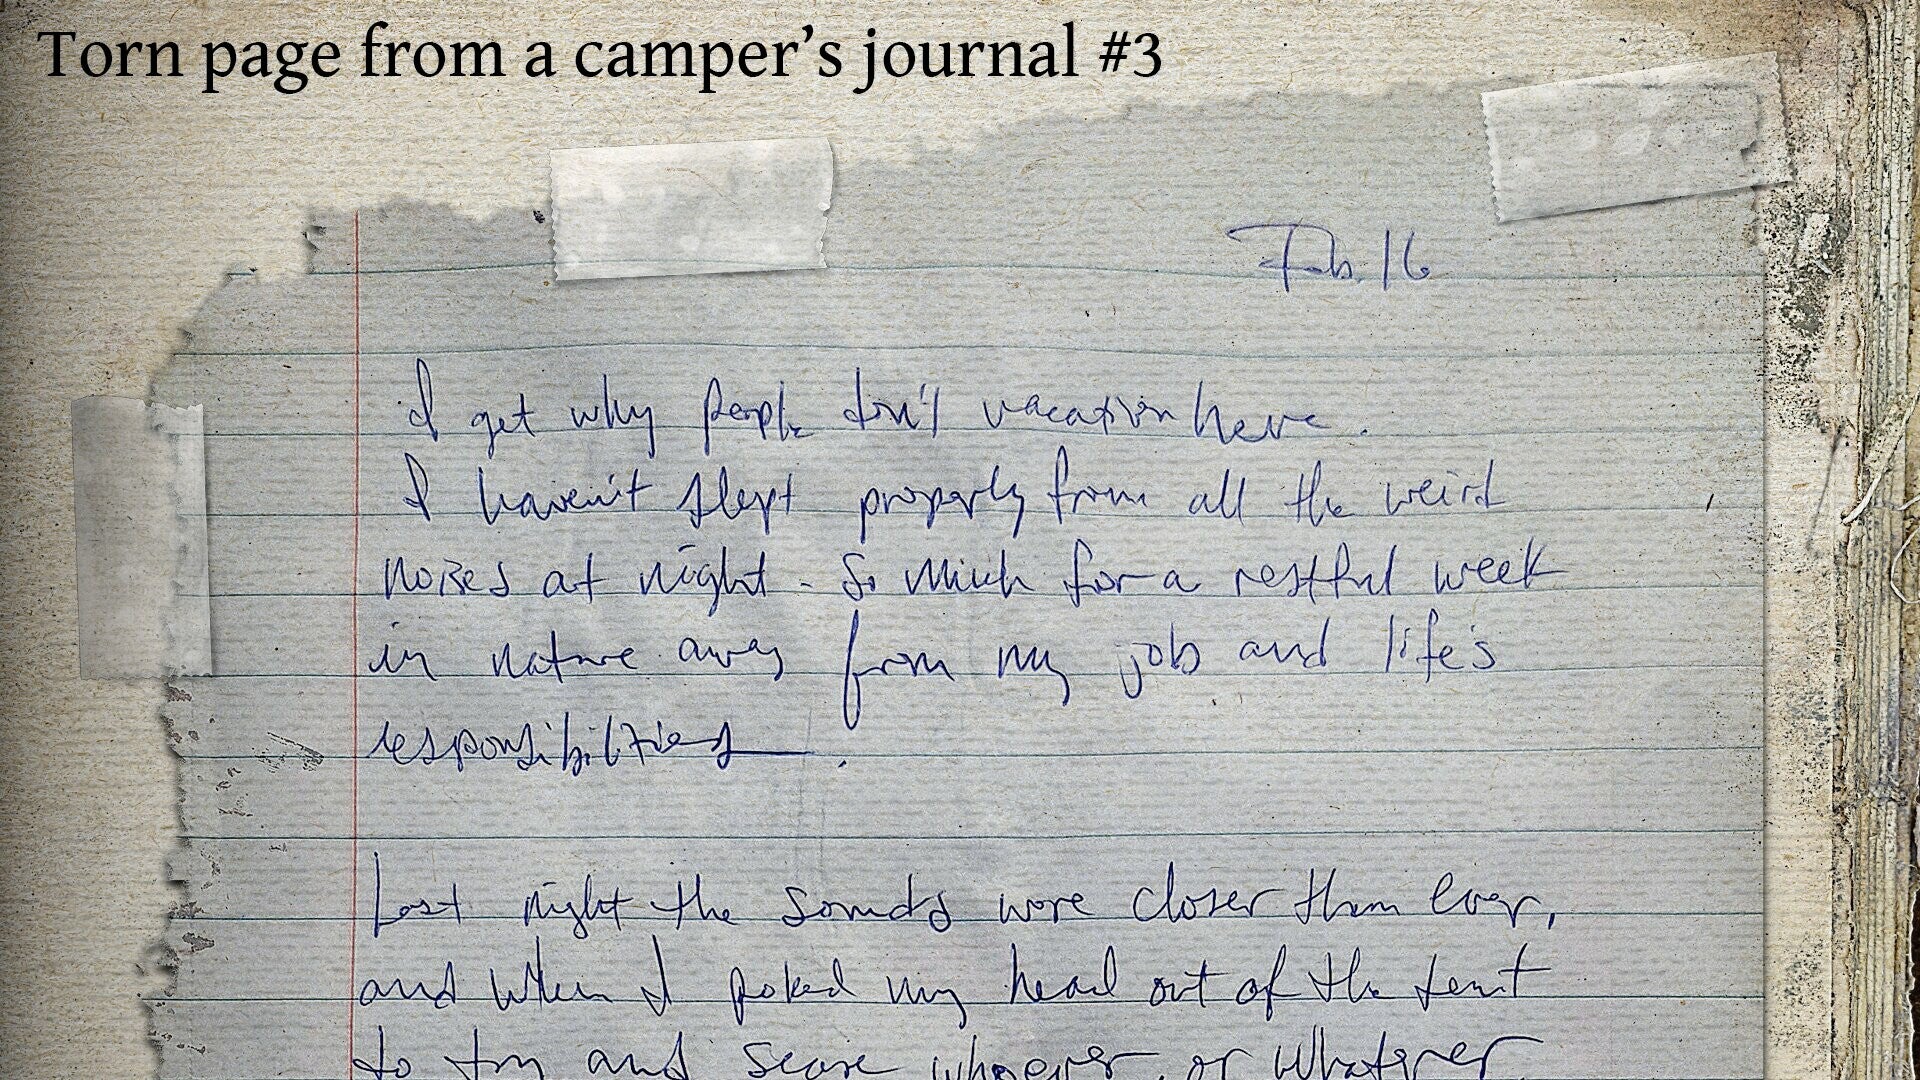 Torn page from a camper’s journal #3
Feb. 16
I get why people don't vacation here.
I haven't slept properly from all the weird
noises at night. So much for a restful week
in nature away from my job and life's
responsibilities.
Last night the sounds were closer than ever,
and when I poked my head out of the tent
to try and scare whoever or whatever